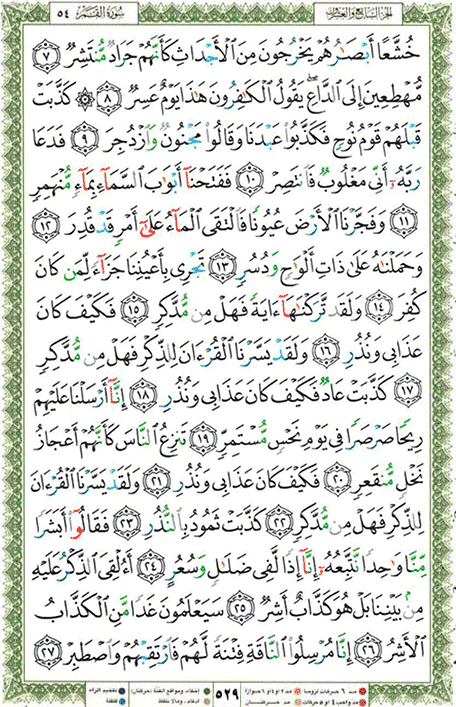 سُورَةُ القَمَرِ ٥٤ الجُزْءُ السَّابِعُ وَالعِشْرُونَ
خُشَّعًا أَبْصَٰرُهُمْ يَخْرُجُونَ مِنَ ٱلْأَجْدَاثِ كَأَنَّهُمْ جَرَادٌ مُّنتَشِرٌ ٧
مُّهْطِعِينَ إِلَى ٱلدَّاعِ ۖ يَقُولُ ٱلْكَٰفِرُونَ هَٰذَا يَوْمٌ عَسِرٌ ٨ ۞ كَذَّبَتْ
قَبْلَهُمْ قَوْمُ نُوحٍ فَكَذَّبُوا۟ عَبْدَنَا وَقَالُوا۟ مَجْنُونٌ وَٱزْدُجِرَ ٩ فَدَعَا
رَبَّهُۥٓ أَنِّى مَغْلُوبٌ فَٱنتَصِرْ ١٠ فَفَتَحْنَآ أَبْوَٰبَ ٱلسَّمَآءِ بِمَآءٍ مُّنْهَمِرٍ
١١ وَفَجَّرْنَا ٱلْأَرْضَ عُيُونًا فَٱلْتَقَى ٱلْمَآءُ عَلَىٰٓ أَمْرٍ قَدْ قُدِرَ ١٢
وَحَمَلْنَٰهُ عَلَىٰ ذَاتِ أَلْوَٰحٍ وَدُسُرٍ ١٣ تَجْرِى بِأَعْيُنِنَا جَزَآءً لِّمَن كَانَ
كُفِرَ ١٤ وَلَقَد تَّرَكْنَٰهَآ ءَايَةً فَهَلْ مِن مُّدَّكِرٍ ١٥ فَكَيْفَ كَانَ
عَذَابِى وَنُذُرِ ١٦ وَلَقَدْ يَسَّرْنَا ٱلْقُرْءَانَ لِلذِّكْرِ فَهَلْ مِن مُّدَّكِرٍ
١٧ كَذَّبَتْ عَادٌ فَكَيْفَ كَانَ عَذَابِى وَنُذُرِ ١٨ إِنَّآ أَرْسَلْنَا عَلَيْهِمْ
رِيحًا صَرْصَرًا فِى يَوْمِ نَحْسٍ مُّسْتَمِرٍّ ١٩ تَنزِعُ ٱلنَّاسَ كَأَنَّهُمْ أَعْجَازُ
نَخْلٍ مُّنقَعِرٍ ٢٠ فَكَيْفَ كَانَ عَذَابِى وَنُذُرِ ٢١ وَلَقَدْ يَسَّرْنَا ٱلْقُرْءَانَ
لِلذِّكْرِ فَهَلْ مِن مُّدَّكِرٍ ٢٢ كَذَّبَتْ ثَمُودُ بِٱلنُّذُرِ ٢٣ فَقَالُوٓا۟ أَبَشَرًا
مِّنَّا وَٰحِدًا نَّتَّبِعُهُۥٓ إِنَّآ إِذًا لَّفِى ضَلَٰلٍ وَسُعُرٍ ٢٤ أَءُلْقِىَ ٱلذِّكْرُ عَلَيْهِ
مِنۢ بَيْنِنَا بَلْ هُوَ كَذَّابٌ أَشِرٌ ٢٥ سَيَعْلَمُونَ غَدًا مَّنِ ٱلْكَذَّابُ
ٱلْأَشِرُ ٢٦ إِنَّا مُرْسِلُوا۟ ٱلنَّاقَةِ فِتْنَةً لَّهُمْ فَٱرْتَقِبْهُمْ وَٱصْطَبِرْ ٢٧
٥٢٩